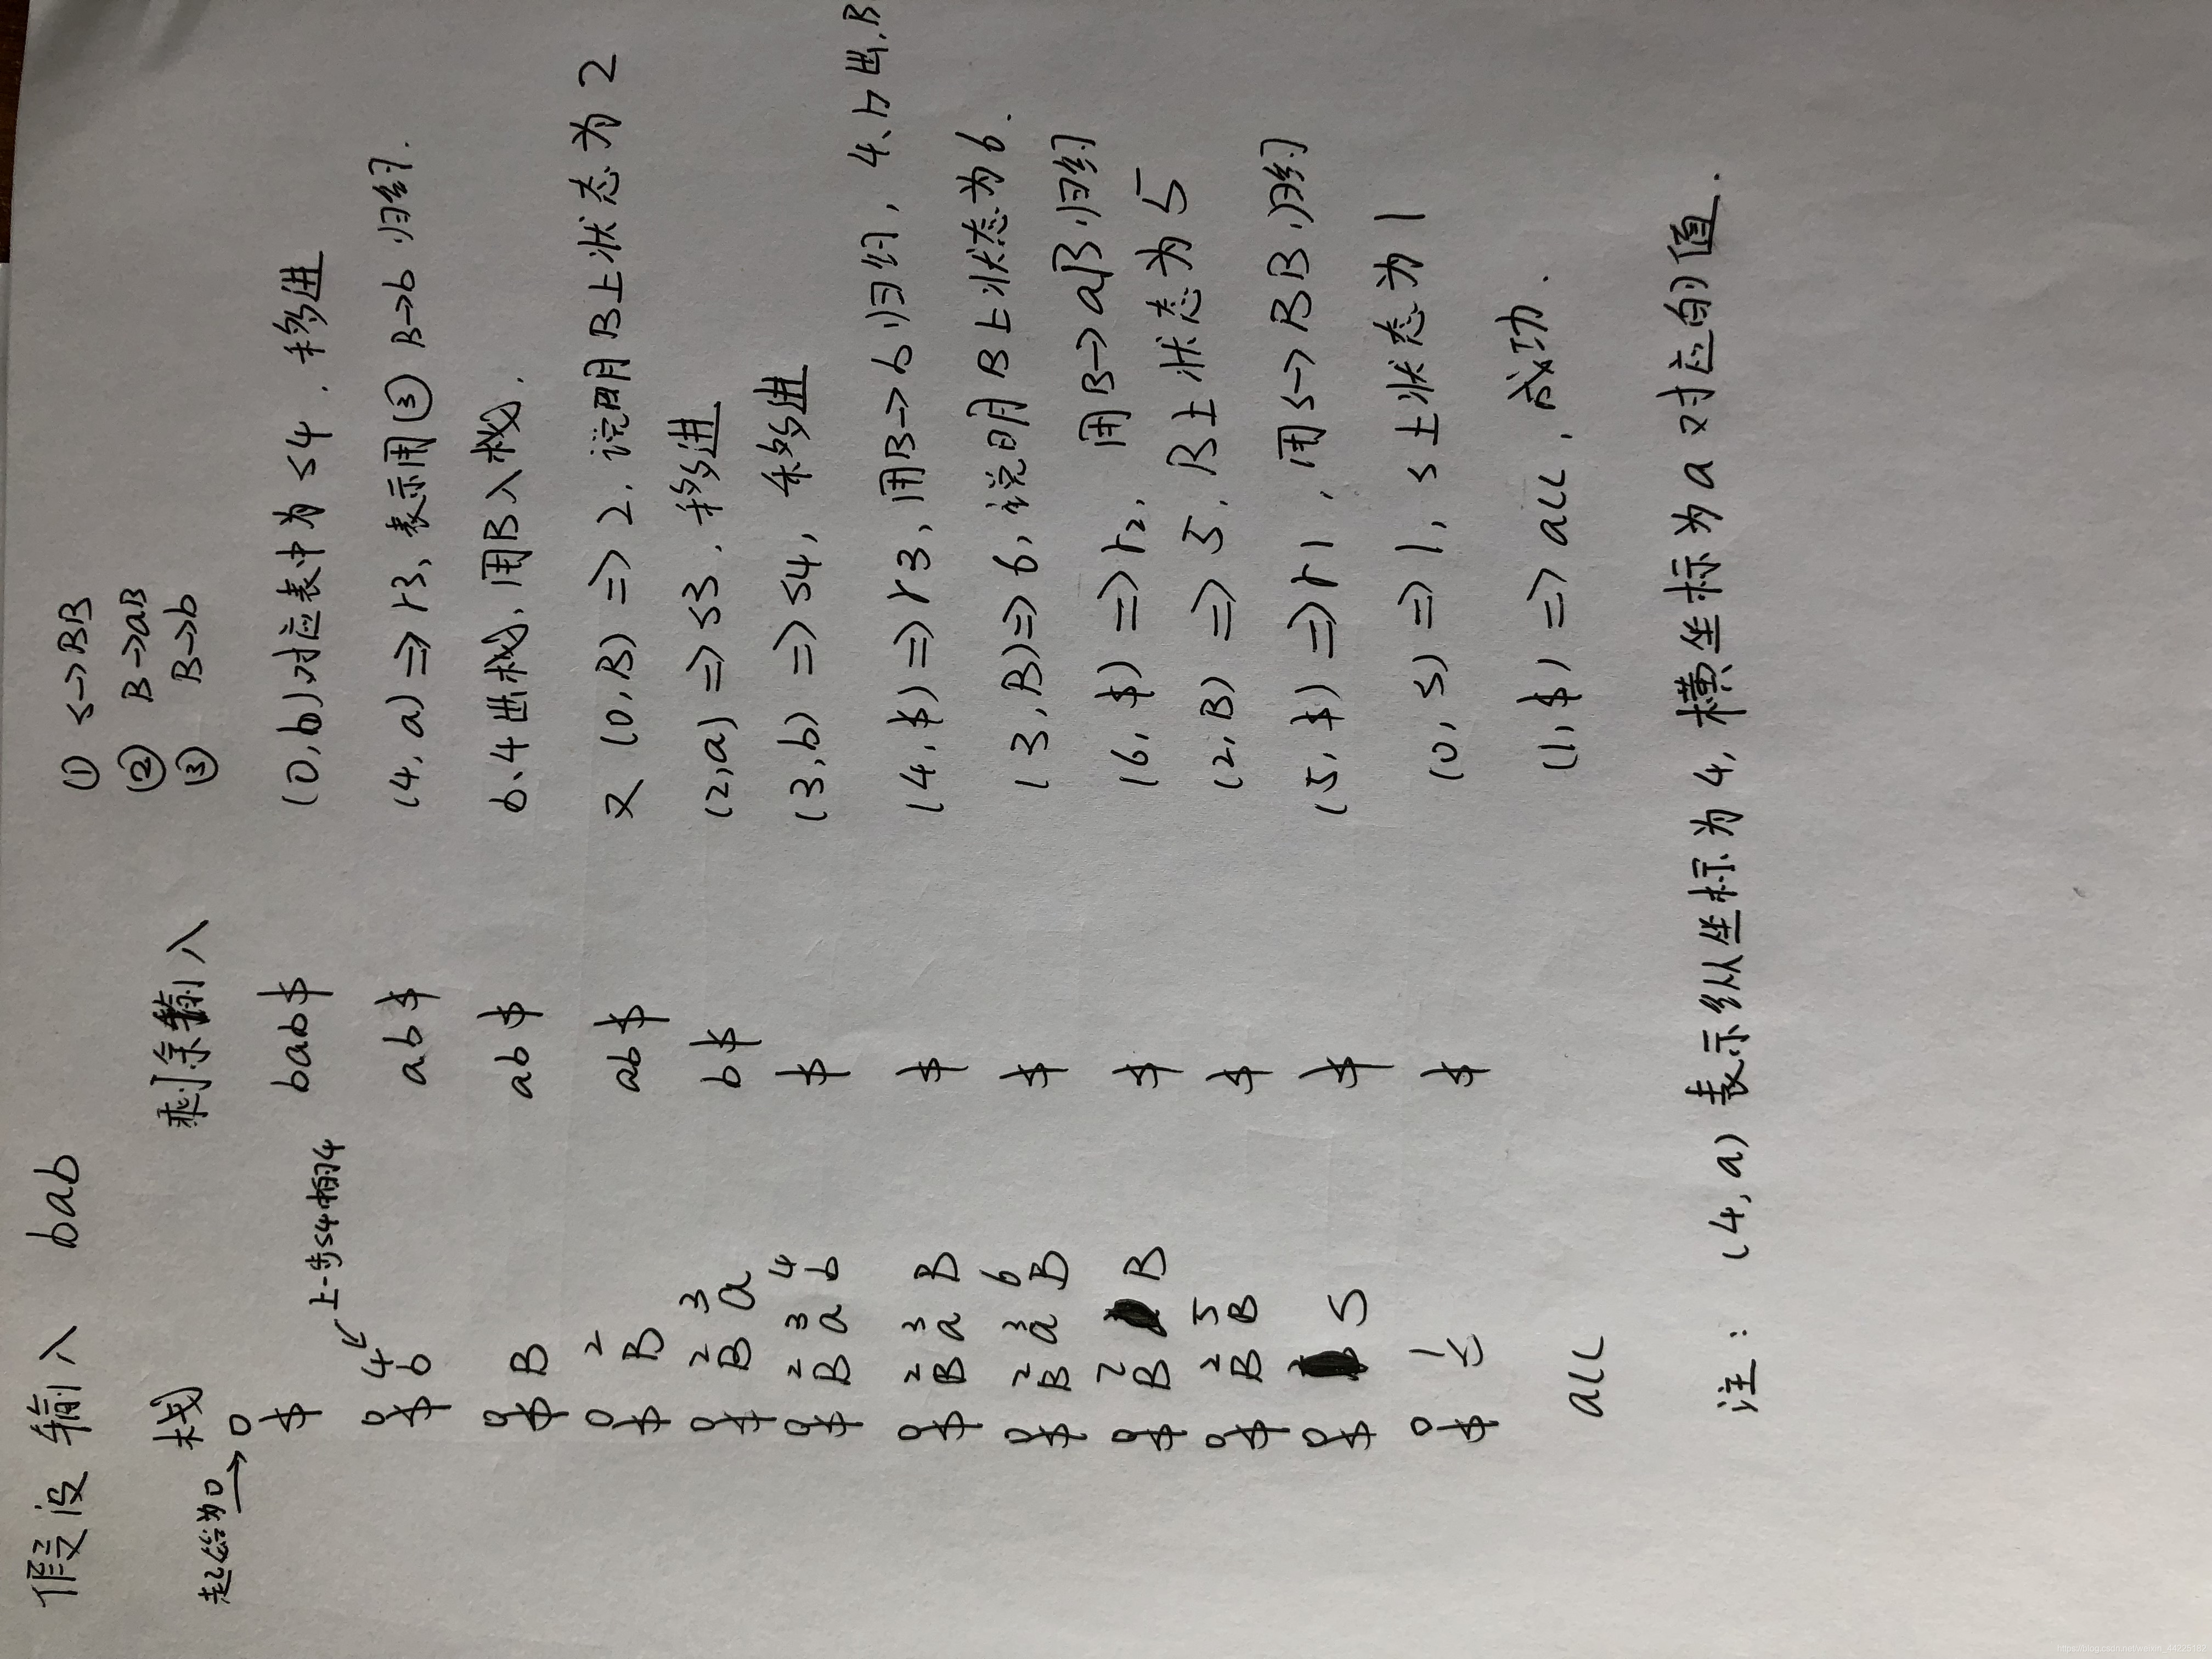 假设输入 bab
① S→BB
② B→aB
③ B→b
栈 剩余输入
起始为0→
0
$ bab$ (0,b)对应表中为S4,移进
上一步S4中的4
0 4
$ b ab$ (4,a)⇒r3,表示用③B→b归约.
0
$ B ab$ b、4出栈,用B入栈.
0 2
$ B ab$ 又(0,B)⇒2,说明B上状态为2
0 2 3
$ B a b$ (2,a)⇒S3,移进
0 2 3 4
$ B a b $ (3,b)⇒S4,移进
0 2 3
$ B a B $ (4,$)⇒r3,用B→b归约,4、b出,B
0 2 3 6
$ B a B $ (3,B)⇒6,说明B上状态为6.
0 2
$ B B $ (6,$)⇒r2,用B→aB归约
0 2 5
$ B B $ (2,B)⇒5.B上状态为5
0
$ S $ (5,$)⇒r1,用S→BB归约
0 1
$ S $ (0,S)⇒1,S上状态为1
acc (1,$)⇒acc,成功.
注:(4,a)表示纵坐标为4,横坐标为a对应的值.
https://blog.csdn.net/weixin_44225182